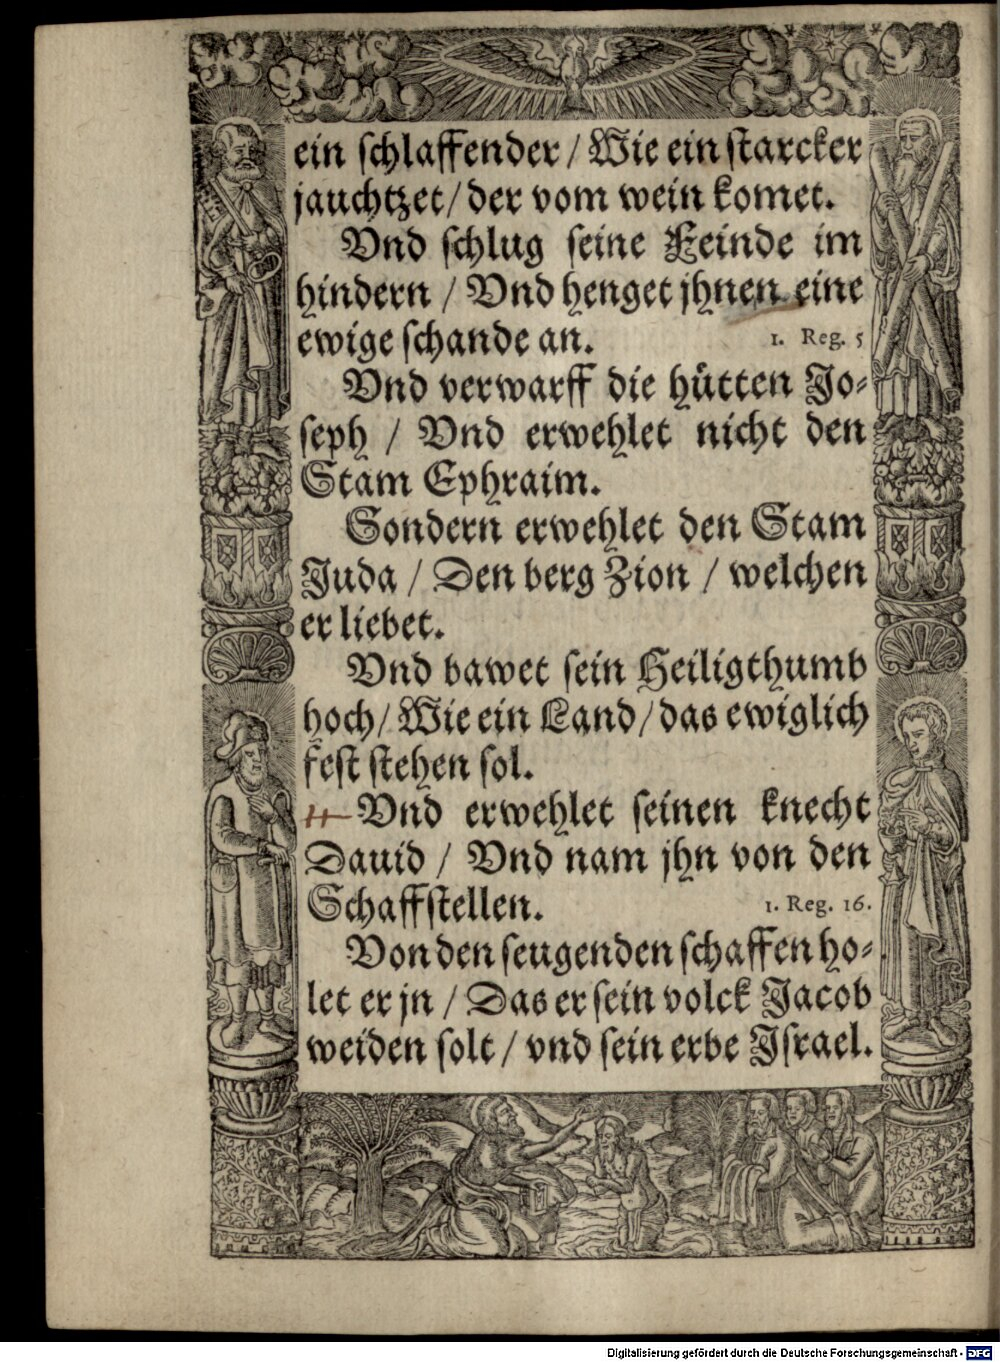 ein schlaffender / Wie ein starcker
jauchtzet / der vom wein komet.
Vnd schlug seine Feinde im
hindern / Vnd henget jhnen eine
ewige schande an. 1. Reg. 5
Vnd verwarff die hütten Jo-
seph / Vnd erwehlet nicht den
Stam Ephraim.
Sondern erwehlet den Stam
Juda / Den berg Zion / welchen
er liebet.
Vnd bawet sein Heiligthumb
hoch / Wie ein Land / das ewiglich
fest stehen sol.
Vnd erwehlet seinen knecht
Dauid / Vnd nam jhn von den
Schaffstellen. 1. Reg. 16.
Von den seugenden schaffen ho-
let er jn / Das er sein volck Jacob
weiden solt / vnd sein erbe Jsrael.
Digitalisierung gefördert durch die Deutsche Forschungsgemeinschaft - DFG